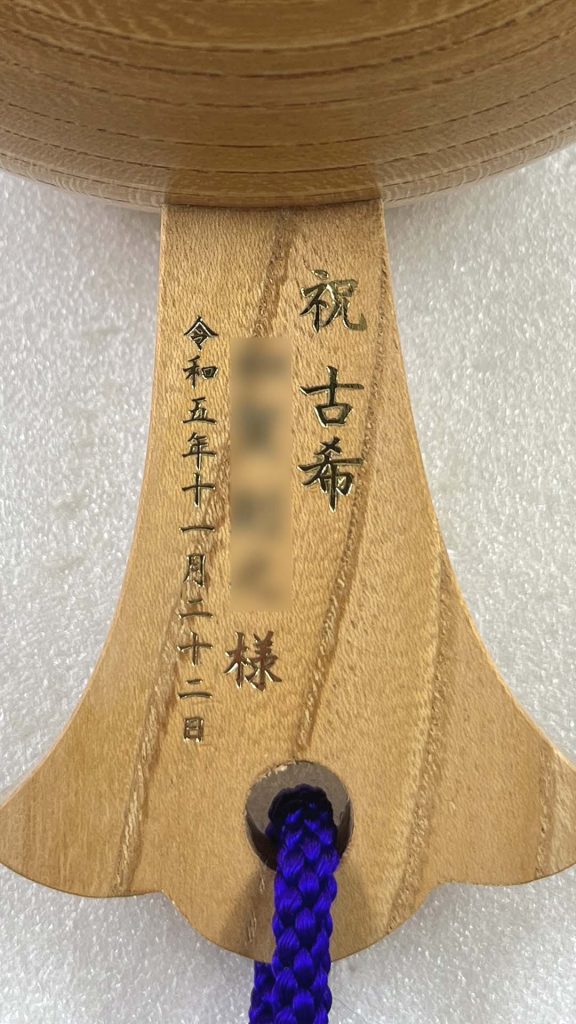 祝 古希
様
令和五年十一月二十二日